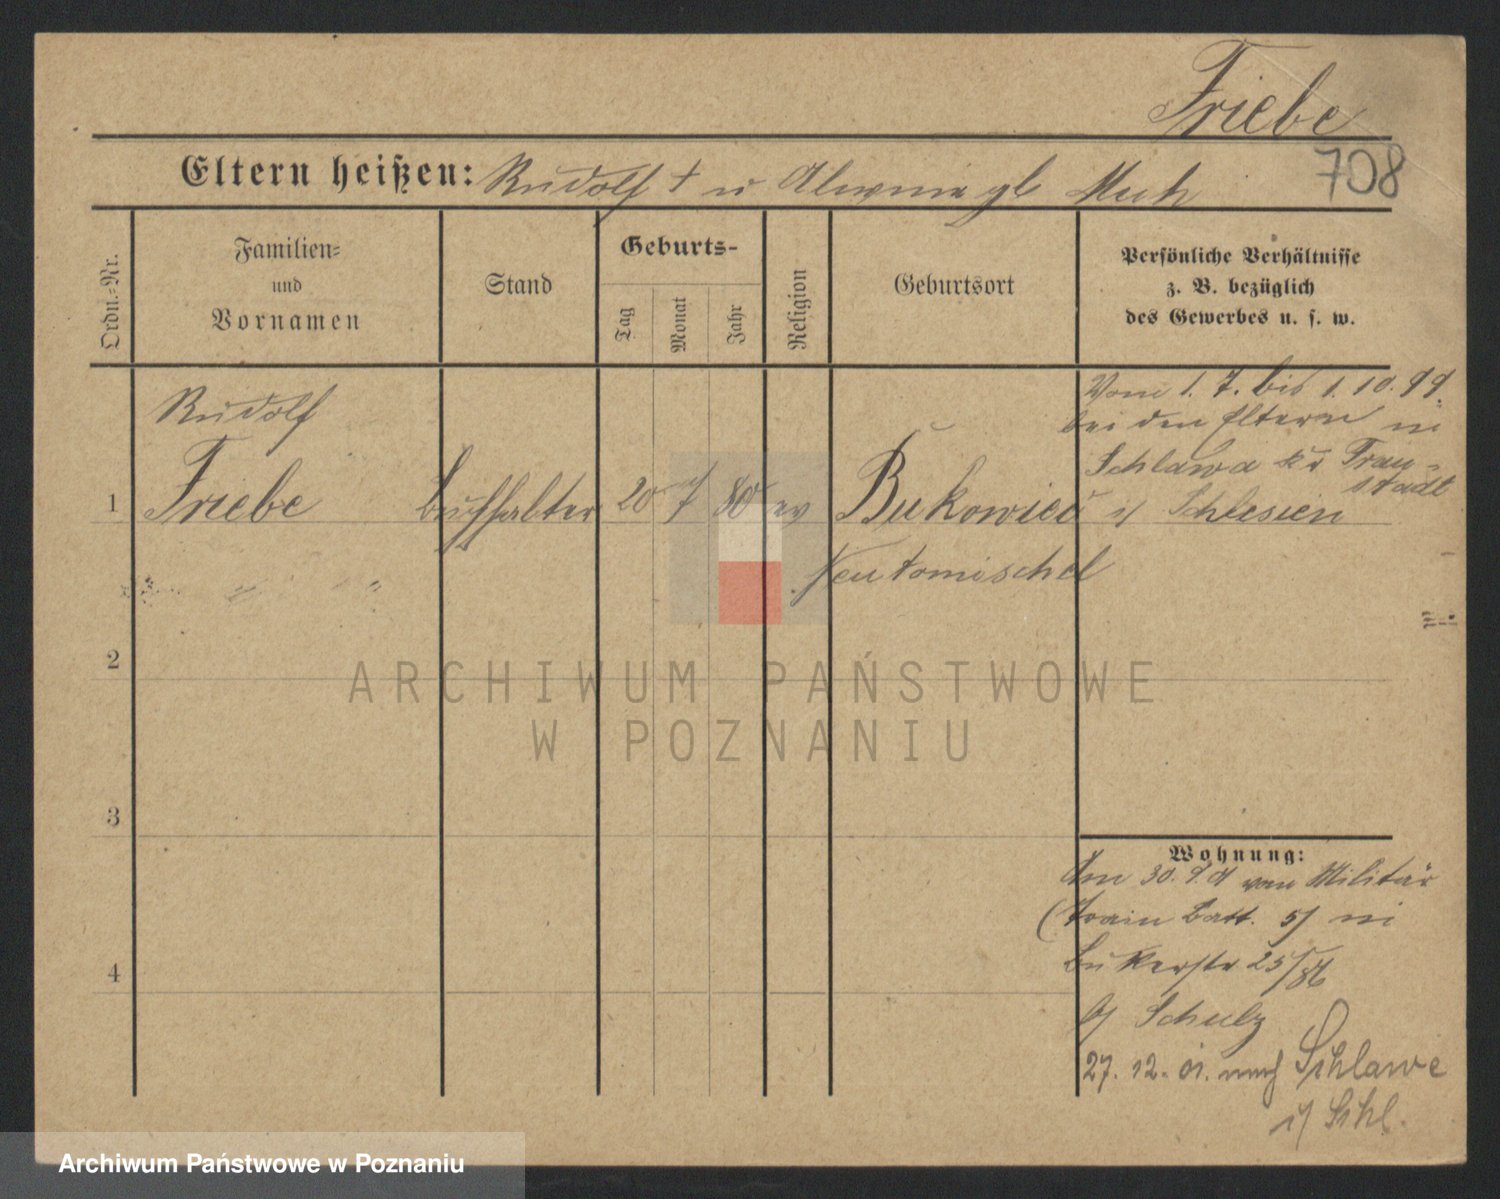 Friebe
708
Eltern heißen: Rudolf † u Alwine gb
Ordn.-Nr.
Familien-
und
Vornamen
Stand
Geburts-
Tag
Monat
Jahr
Religion
Geburtsort
Persönliche Verhältnisse
z. B. bezüglich
des Gewerbes u. s. w.
1
Rudolf
Friebe
Buchhalter
20
7
80
ev
Bukowiec
Neutomischel
Vom 1. 7. bis 1. 10. 99.
bei den Eltern in
Schlawa Frau-
stadt
i/ Schlesien
2
3
4
Wohnung:
Am 30. 9. 01 vom Militär
(Train Batt. 5) in
Bukerstr 25/
b/ Schulz
27. 12. 01. nach Schlawe
i/ Schl.
ARCHIWUM PAŃSTWOWE
W POZNANIU
Archiwum Państwowe w Poznaniu